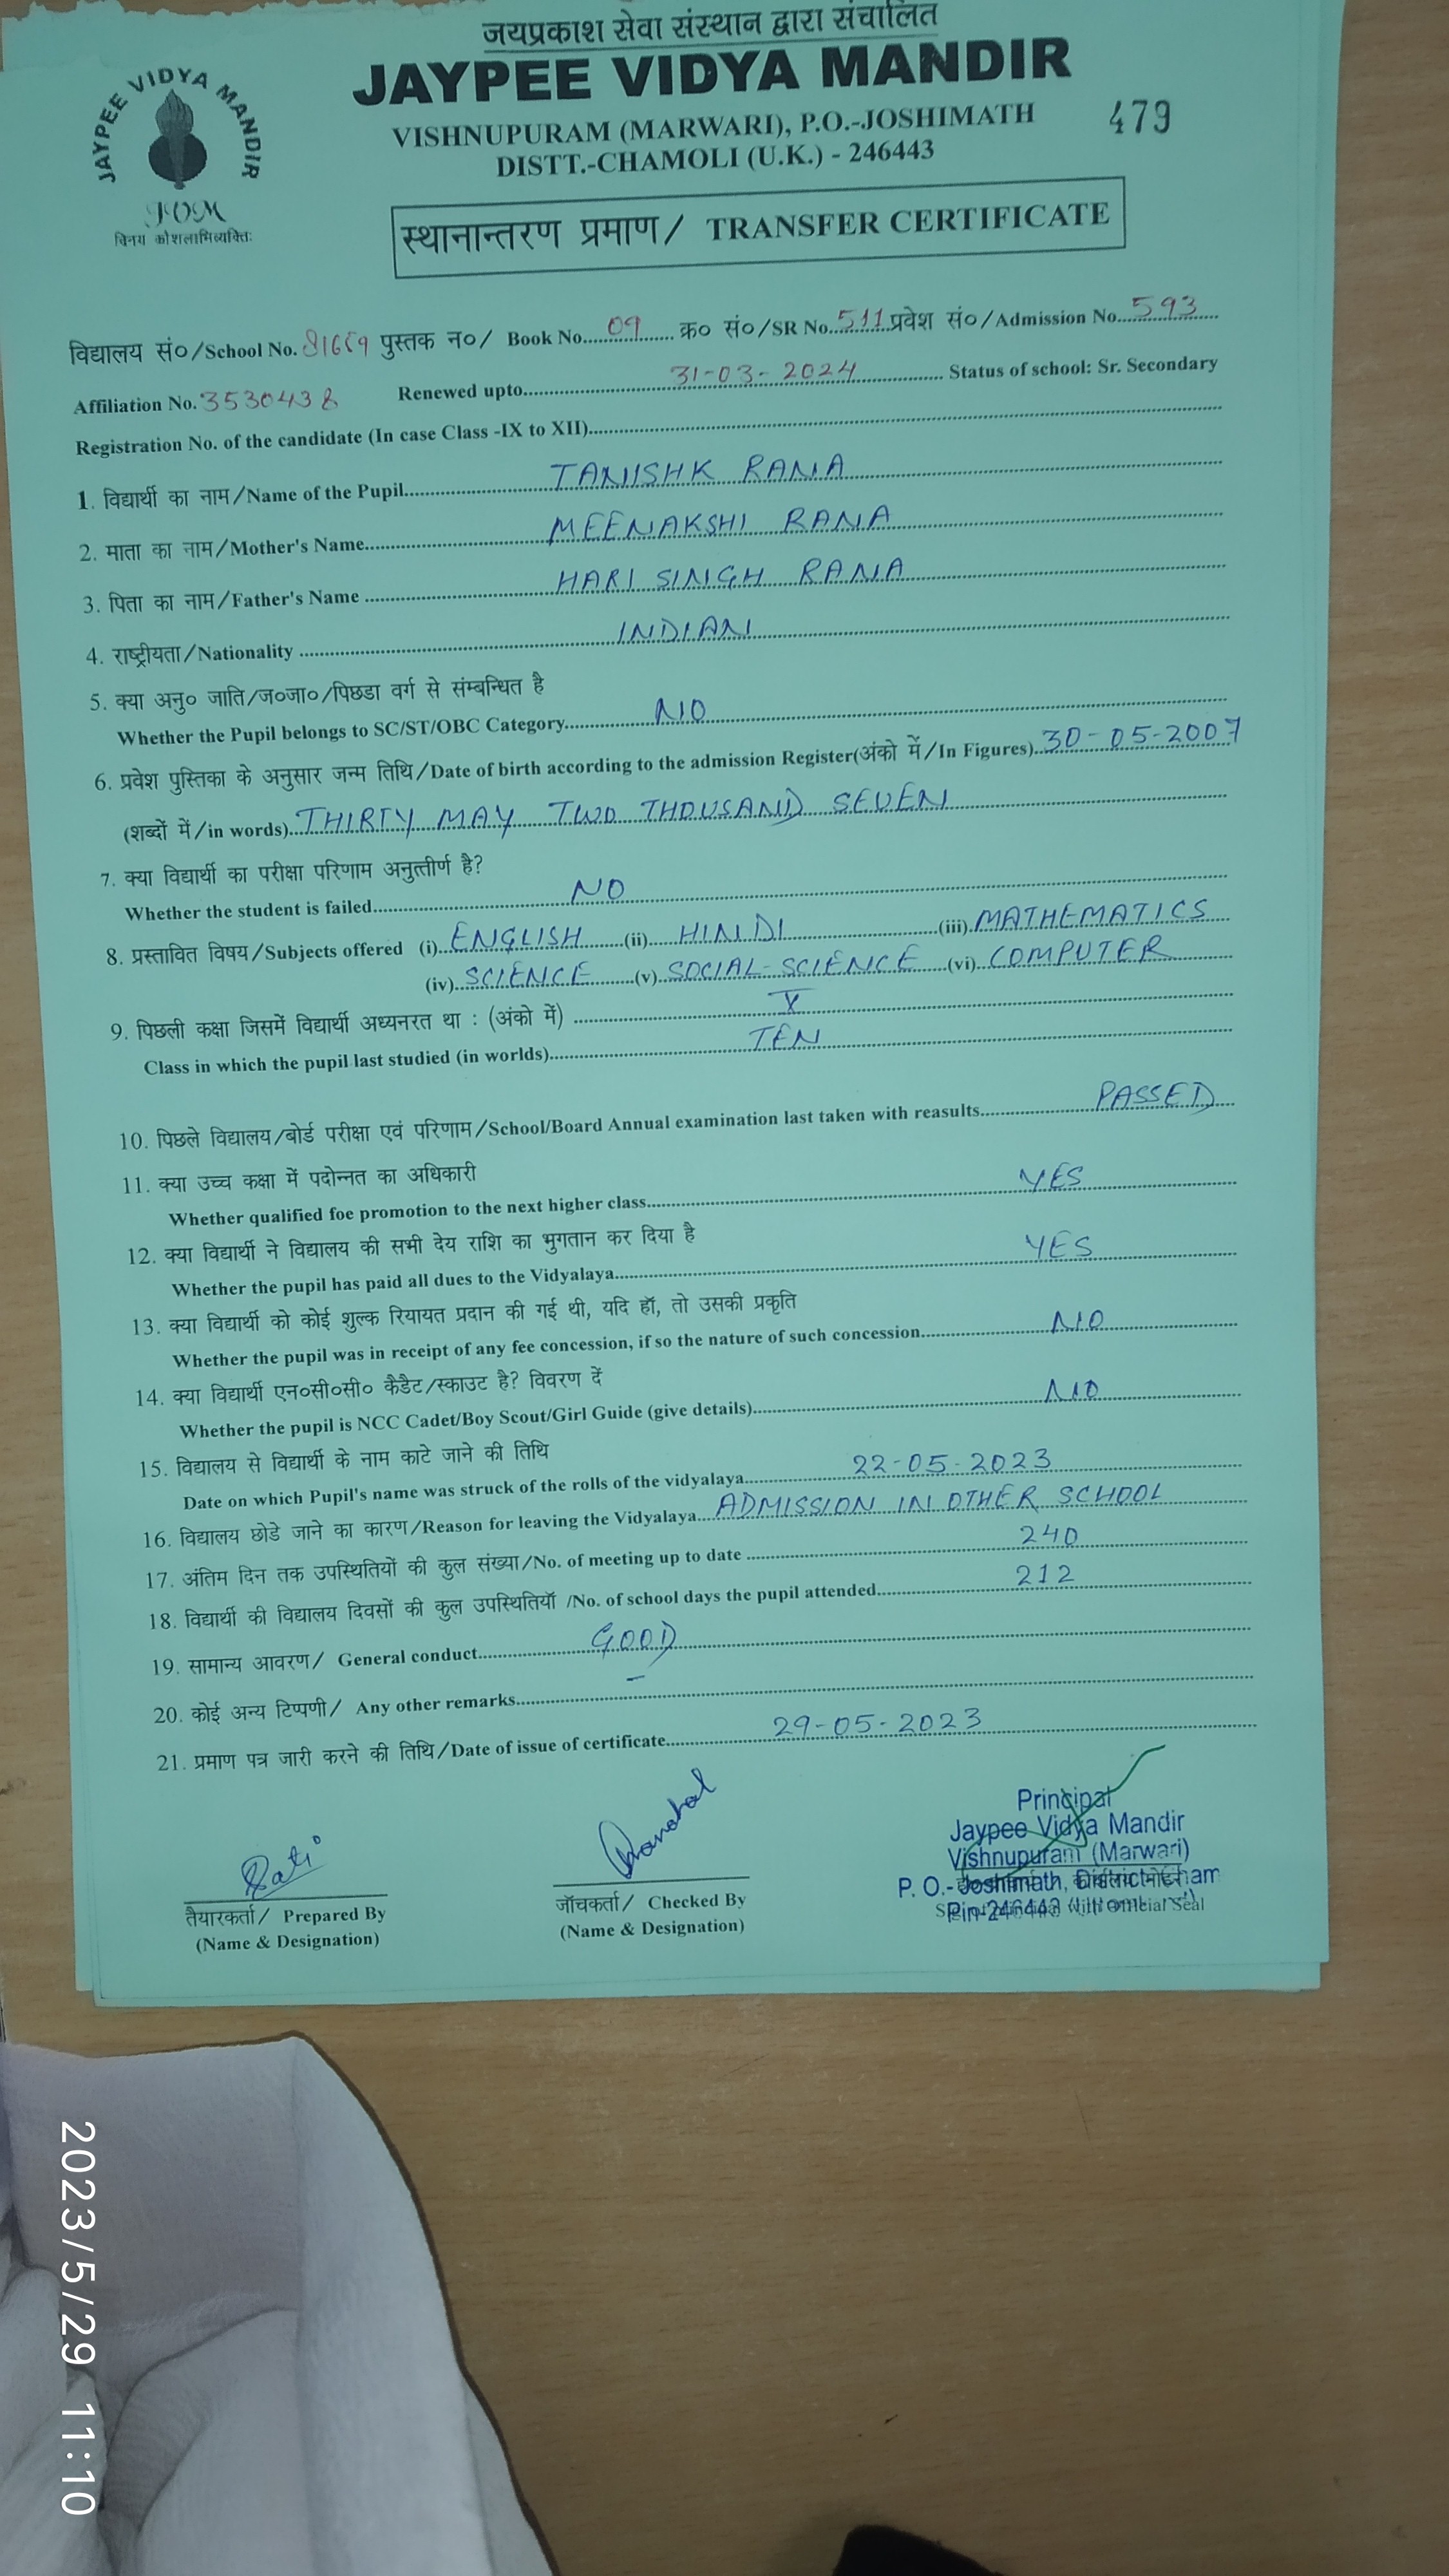 जयप्रकाश सेवा संस्थान द्वारा संचालित
JAYPEE VIDYA MANDIR
JAYPEE VIDYA MANDIR
VISHNUPURAM (MARWARI), P.O.-JOSHIMATH
479
DISTT.-CHAMOLI (U.K.) - 246443
विनय कौशलाभिव्यक्तिः
स्थानान्तरण प्रमाण/ TRANSFER CERTIFICATE
विद्यालय सं०/School No. 81659 पुस्तक न०/ Book No. 09 क्र० सं०/SR No. 511 प्रवेश सं०/Admission No. 593
Affiliation No. 3530438 Renewed upto 31-03-2024 Status of school: Sr. Secondary
Registration No. of the candidate (In case Class -IX to XII)
1. विद्यार्थी का नाम/Name of the Pupil TANISHK RANA
2. माता का नाम/Mother's Name MEENAKSHI RANA
3. पिता का नाम/Father's Name HARI SINGH RANA
4. राष्ट्रीयता/Nationality INDIAN
5. क्या अनु० जाति/ज०जा०/पिछडा वर्ग से संम्बन्धित है
Whether the Pupil belongs to SC/ST/OBC Category NO
6. प्रवेश पुस्तिका के अनुसार जन्म तिथि/Date of birth according to the admission Register(अंको में/In Figures) 30-05-2007
(शब्दों में/in words) THIRTY MAY TWO THOUSAND SEVEN
7. क्या विद्यार्थी का परीक्षा परिणाम अनुत्तीर्ण है?
Whether the student is failed NO
8. प्रस्तावित विषय/Subjects offered (i) ENGLISH (ii) HINDI (iii) MATHEMATICS
(iv) SCIENCE (v) SOCIAL-SCIENCE (vi) COMPUTER
9. पिछली कक्षा जिसमें विद्यार्थी अध्यनरत था : (अंको में) X
Class in which the pupil last studied (in worlds) TEN
10. पिछले विद्यालय/बोर्ड परीक्षा एवं परिणाम/School/Board Annual examination last taken with reasults PASSED
11. क्या उच्च कक्षा में पदोन्नत का अधिकारी
Whether qualified foe promotion to the next higher class YES
12. क्या विद्यार्थी ने विद्यालय की सभी देय राशि का भुगतान कर दिया है
Whether the pupil has paid all dues to the Vidyalaya YES
13. क्या विद्यार्थी को कोई शुल्क रियायत प्रदान की गई थी, यदि हॉ, तो उसकी प्रकृति
Whether the pupil was in receipt of any fee concession, if so the nature of such concession NO
14. क्या विद्यार्थी एन०सी०सी० कैडैट/स्काउट है? विवरण दें
Whether the pupil is NCC Cadet/Boy Scout/Girl Guide (give details) NO
15. विद्यालय से विद्यार्थी के नाम काटे जाने की तिथि
Date on which Pupil's name was struck of the rolls of the vidyalaya 22-05-2023
16. विद्यालय छोडे जाने का कारण/Reason for leaving the Vidyalaya ADMISSION IN OTHER SCHOOL
17. अंतिम दिन तक उपस्थितियों की कुल संख्या/No. of meeting up to date 240
18. विद्यार्थी की विद्यालय दिवसों की कुल उपस्थितियॉ /No. of school days the pupil attended 212
19. सामान्य आवरण/ General conduct GOOD
20. कोई अन्य टिप्पणी/ Any other remarks -
21. प्रमाण पत्र जारी करने की तिथि/Date of issue of certificate 29-05-2023
Principal
Jaypee Vidya Mandir
Vishnupuram (Marwari)
P. O.-Joshimath, District
Pin-246443
तैयारकर्ता/ Prepared By
(Name & Designation)
जॉचकर्ता/ Checked By
(Name & Designation)
Seal
2023/5/29 11:10